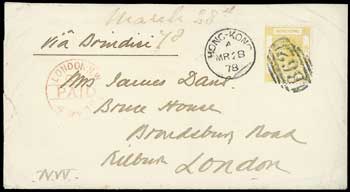 March 28th
/78
via Brindisi
HONG-KONG
A
MR 28
78
B62
LONDON N.W
PAID
Mrs James Dant.
Bruce House
Brondsbury Road
Kilburn
London
N.W.